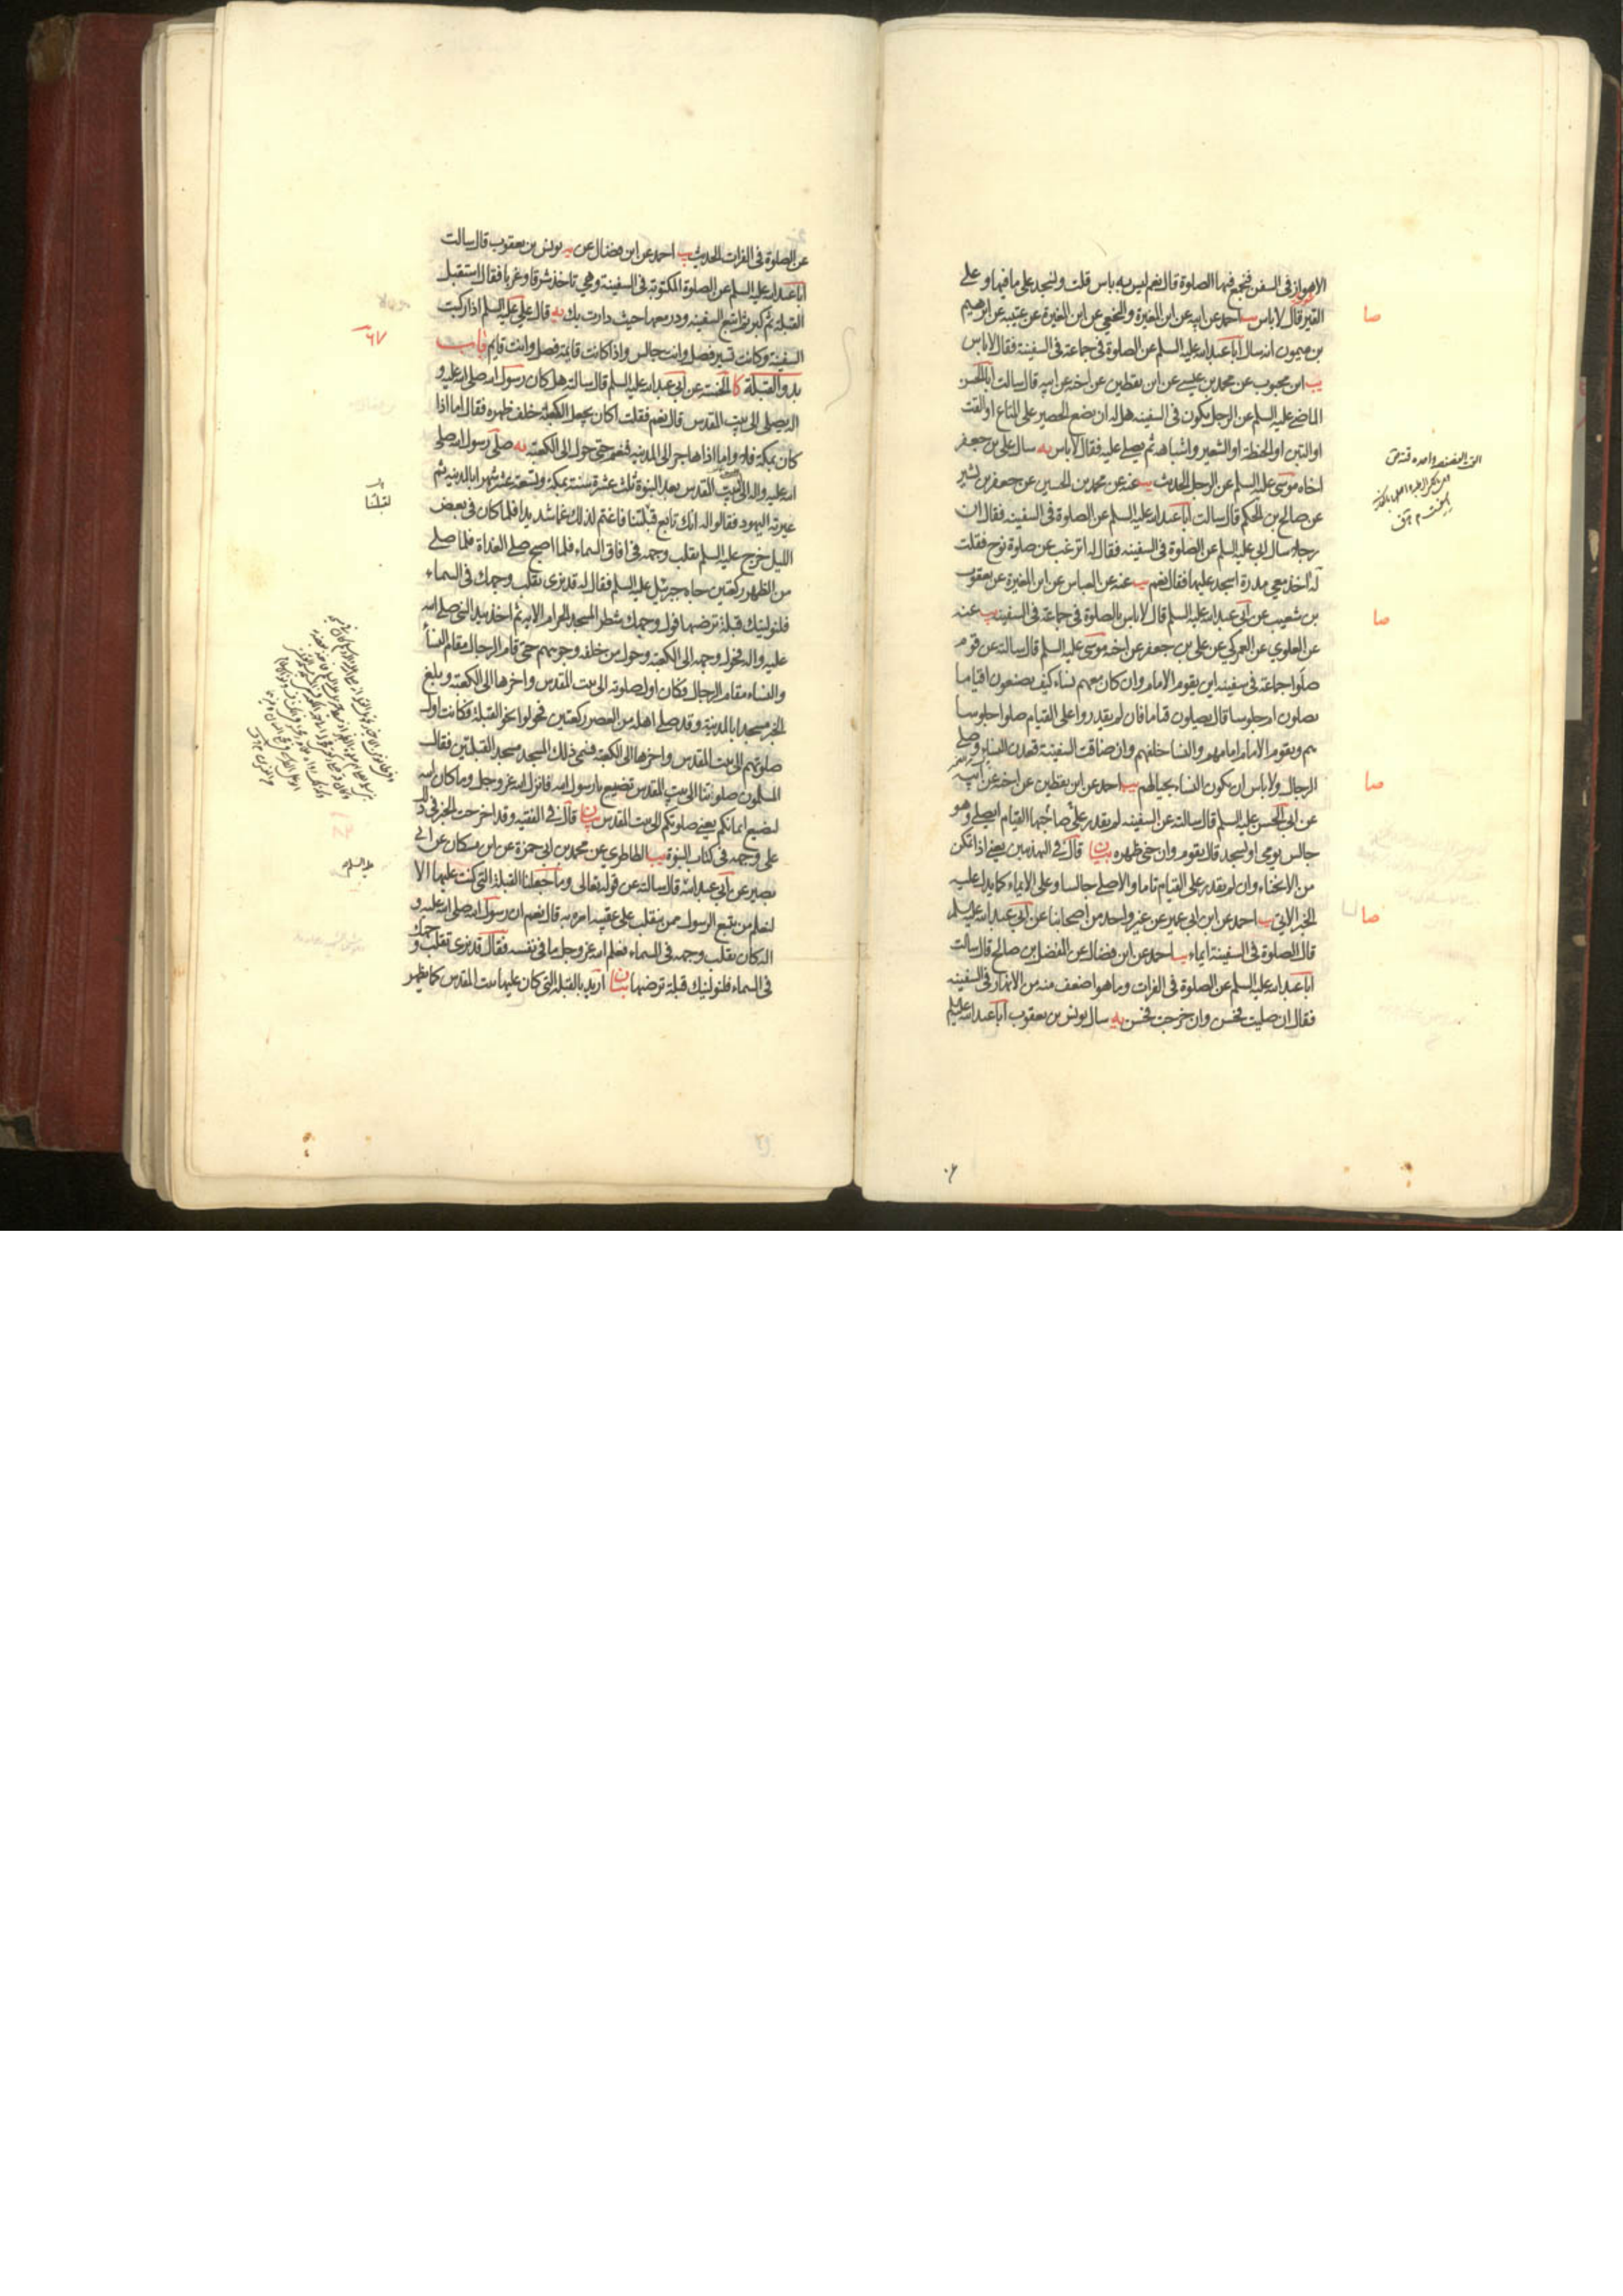 الاهواز فى السفن فنجمع فيها الصلوة قال نعم ليس به باس قلت ونسجد على مافيها وعلى
القير قال لا باس يب احمد عن ابيه عن ابن المغيرة والنخعى عن ابن المغيرة عن عتيبه عن ابرهيم
بن ميمون انه سال اباعبدالله عليه السلم عن الصلوة فى جماعة فى السفينة فقال لاباس
يب ابن محبوب عن محمد بن عيسى عن ابن يقطين عن اخيه عن ابيه قال سالت ابا الحسن
الماضى عليه السلم عن الرجل يكون فى السفينه هل له ان يضع الحصير على المتاع او القت
او التبن او الحنطة او الشعير واشباهه ثم يصلى عليه فقال لاباس يه سال على بن جعفر
اخاه موسى عليه السلم عن الرجل الحديث يب عنه عن محمد بن الحسين عن جعفر بن بشير
عن صالح بن الحكم قال سالت اباعبدالله عليه السلم عن الصلوة فى السفينه فقال ان
رجلا سال ابى عليه السلم عن الصلوة فى السفينه فقال له اترغب عن صلوة نوح فقلت
له آخذ معى مدرة اسجد عليها فقال نعم يب عنه عن العباس عن ابن المغيرة عن يعقوب
بن شعيب عن ابى عبدالله عليه السلم قال لاباس بالصلوة فى جماعة فى السفينه يب عنه
عن العلوى عن العمركى عن على بن جعفر عن اخيه موسى عليه السلم قال سالته عن قوم
صلوا جماعة فى سفينه اين يقوم الامام وان كان معهم نساء كيف يصنعون اقياما
يصلون ام جلوسا قال يصلون قياما فان لم يقدروا على القيام صلوا جلوسا
هم ويقوم الامام امامهم والنساء خلفهم وان ضاقت السفينة قعدن النساء وصلى
الرجال ولاباس ان يكون النساء بحيالهم يب احمد عن ابن يقطين عن اخيه عن ابيه
عن ابى الحسن عليه السلم قال سالته عن السفينه لم يقدر صاحبها على القيام ايصلى وهو
جالس يومى او يسجد قال يقوم وان حنى ظهره بيان قال فى التهذيبين يعنى اذا تمكن
من الانحناء وان لم يقدر على القيام تاما والا صلى جالسا وعلى الايماء كما يدل عليه
الخبر الاتى يب احمد عن ابن ابى عمير عن غير واحد من اصحابنا عن ابى عبدالله عليه السلم
قال الصلوة فى السفينة ايماء يب احمد عن ابن فضال عن المفضل بن صالح قال سالت
اباعبدالله عليه السلم عن الصلوة فى الفرات وما هو اضعف منه من الانهار فى السفينه
فقال ان صليت فحسن وان خرجت فحسن يه سال يونس بن يعقوب اباعبدالله عليه السلم
صا
صا
صا
صا
عن الصلوة فى الفرات الحديث يب احمد عن ابن فضال عن يه يونس بن يعقوب قال سالت
اباعبدالله عليه السلم عن الصلوة المكتوبة فى السفينة وهى تاخذ شرقا وغربا فقال استقبل
القبلة ثم كبر ثم اتبع السفينه ودر معها حيث دارت بك يه قال على عليه السلم اذا ركبت
السفينة وكانت تسير فصل وانت جالس واذا كانت قائمة فصل وانت قايم باب
بدو القبلة كا الخمسة عن ابى عبدالله عليه السلم قال سالته هل كان رسول الله صلى الله عليه و
اله يصلى الى بيت المقدس قال نعم فقلت اكان يجعل الكعبة خلف ظهره فقال اما اذا
كان بمكة فلا واما اذا هاجر الى المدينه فنعم حتى حول الى الكعبة يه صلى رسول الله صلى
الله عليه واله الى البيت المقدس بعد النبوة ثلث عشرة سنة بمكة وتسعة عشر شهرا بالمدينة ثم
عيرته اليهود فقالوا له انك تابع قبلتنا فاغتم لذلك غما شديدا فلما كان فى بعض
الليل خرج عليه السلم يقلب وجهه فى افاق السماء فلما اصبح صلى الغداة فلما صلى
من الظهر ركعتين جاءه جبرئيل عليه السلم فقال له قد نرى تقلب وجهك فى السماء
فلنولينك قبلة ترضيها فول وجهك شطر المسجد الحرام الاية ثم اخذ بيد النبى صلى الله
عليه واله فحول وجهه الى الكعبة وحول من خلفه وجوههم حتى قام الرجال مقام النساء
والنساء مقام الرجال فكان اول صلوته الى بيت المقدس واخرها الى الكعبة وبلغ
الخبر مسجدا بالمدينة وقد صلى اهله من العصر ركعتين فحولوا نحو القبلة فكانت اول
صلوتهم الى بيت المقدس واخرها الى الكعبة فسمى ذلك المسجد مسجد القبلتين فقال
المسلمون صلوتنا الى بيت المقدس تضيع يا رسول الله فانزل الله عز وجل وما كان الله
ليضيع ايمانكم يعنى صلوتكم الى بيت المقدس بيان قال فى الفقيه وقد اخرجت الخبر فى ذلك
على وجهه فى كتاب النبوة يب الطاطرى عن محمد بن ابى حمزة عن ابن مسكان عن ابى
بصير عن ابى عبدالله قال سالته عن قوله تعالى وما جعلنا القبلة التى كنت عليها الا
لنعلم من يتبع الرسول ممن ينقلب على عقبيه امره به قال نعم ان رسول الله صلى الله عليه و
اله كان يقلب وجهه فى السماء فعلم الله عز وجل ما فى نفسه فقال قد نرى تقلب وجهك
فى السماء فلنولينك قبلة ترضيها بيان اريد بالقبلة التى كان عليها بيت المقدس كما يظهر
٦٧
لقبلتنا
عليه السلم